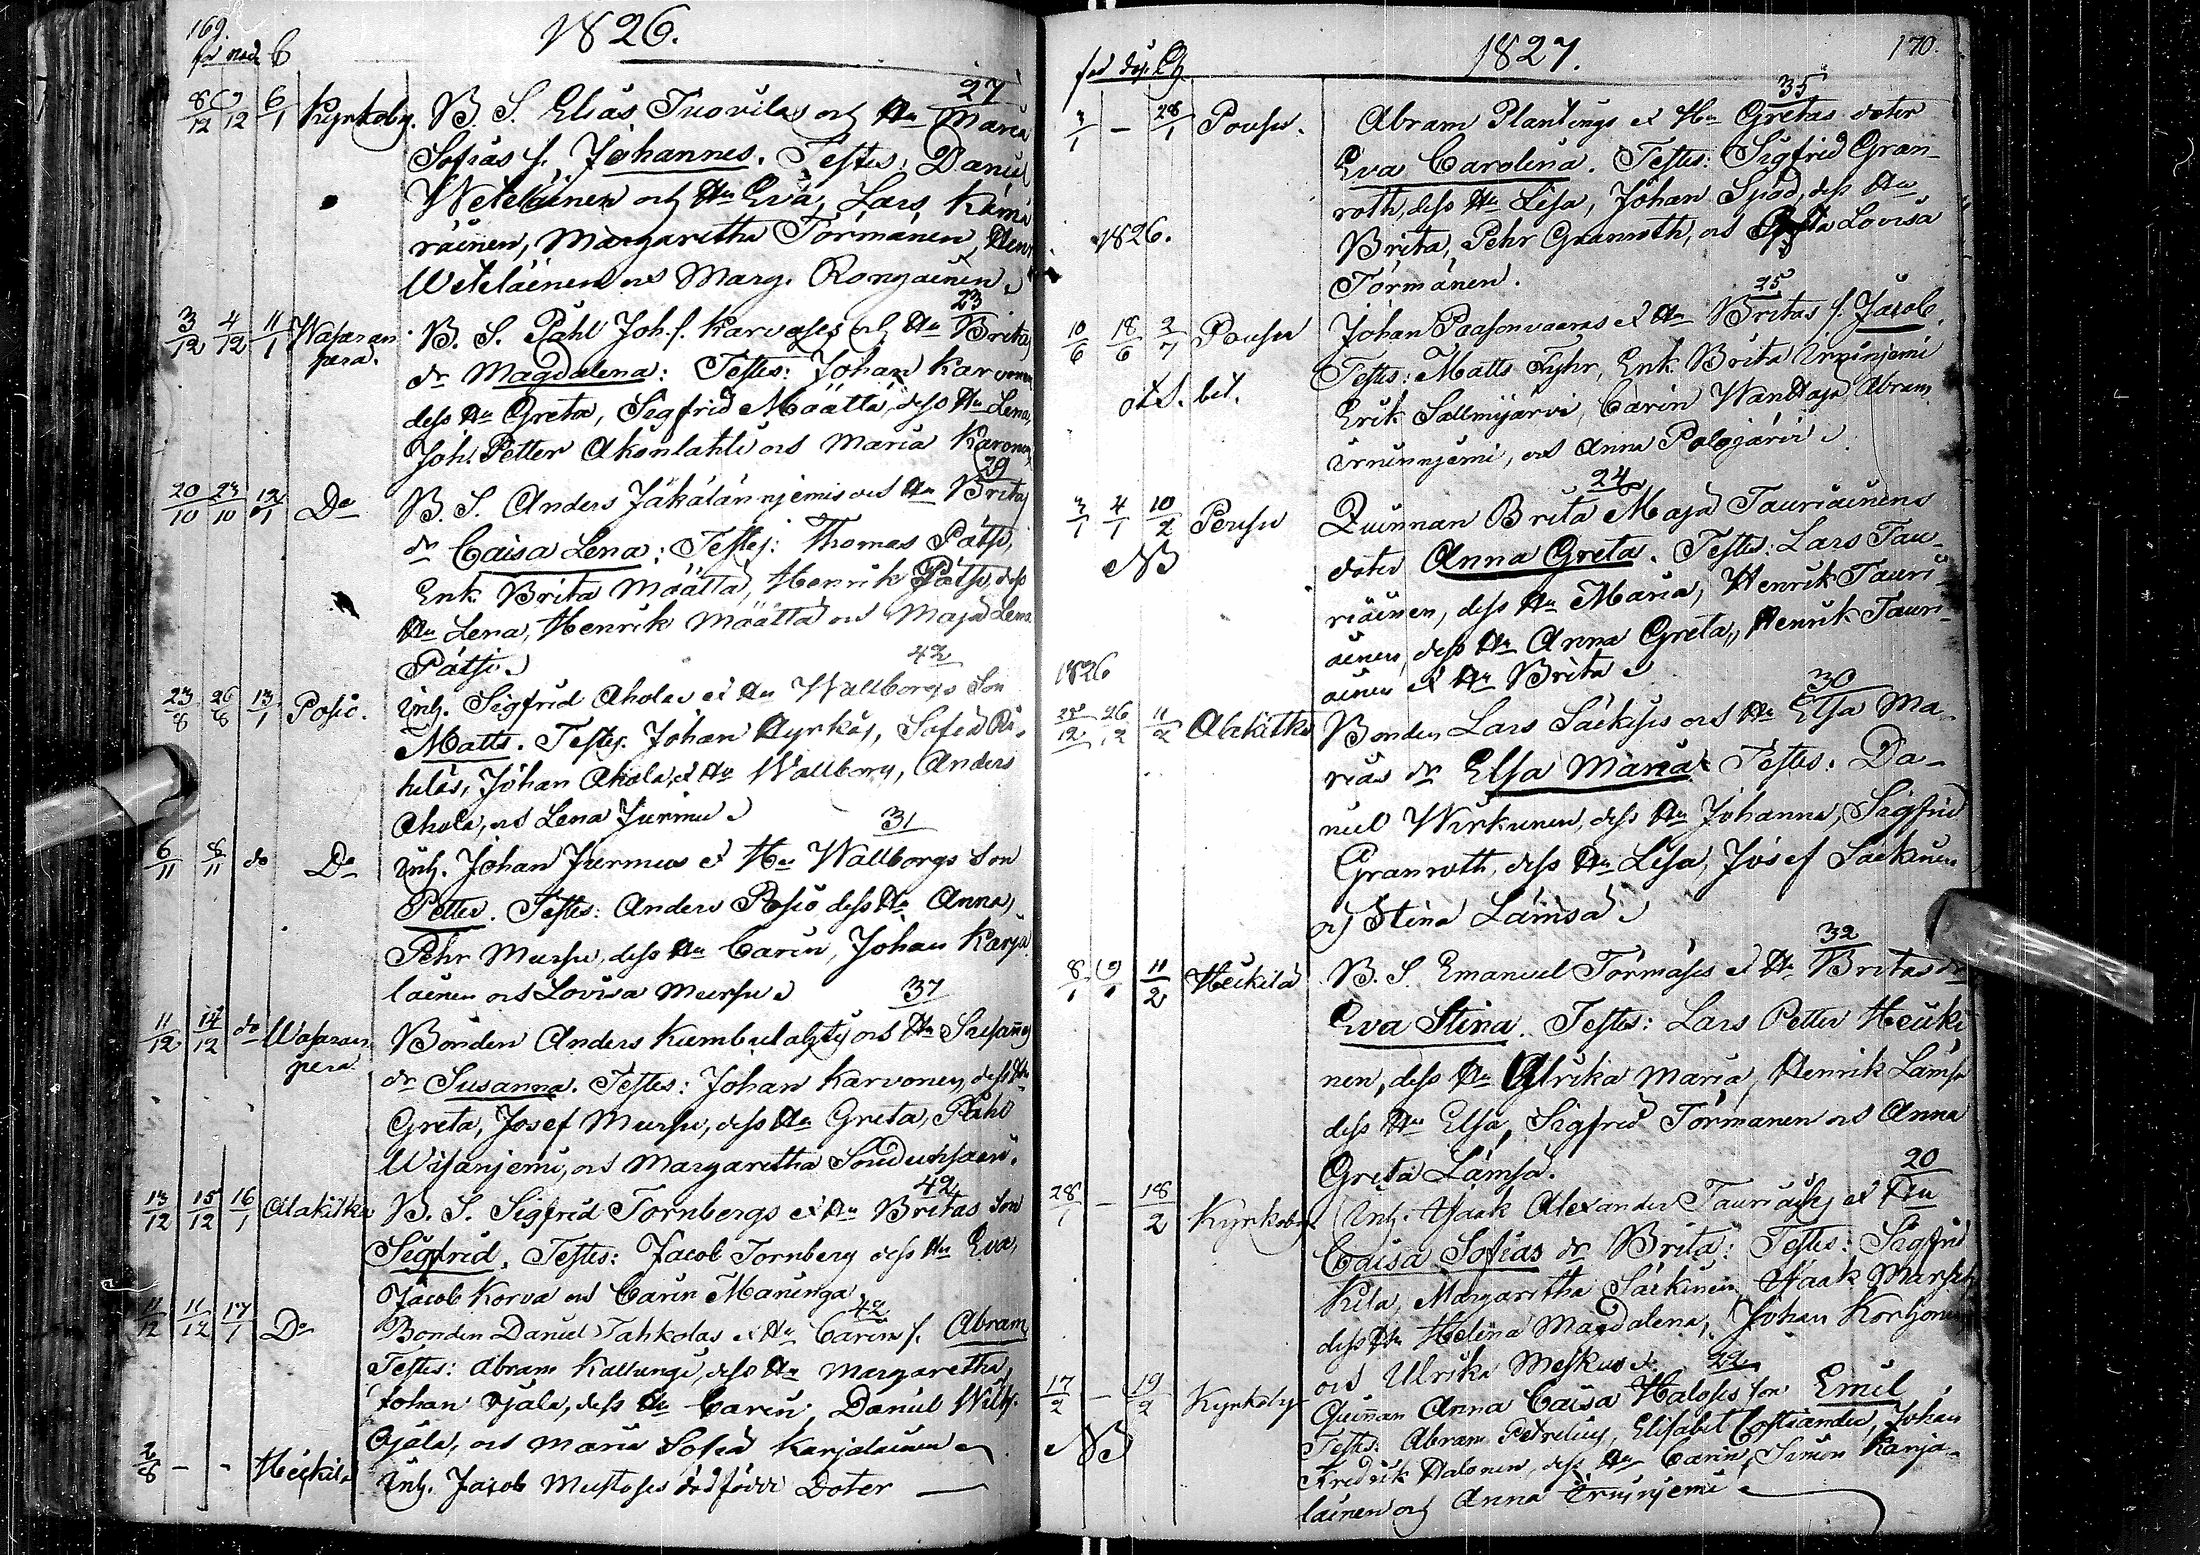 169.
1826.
född nöd. C
8/12 9/12 6/1 Kyrkoby. B. S. Elias Tuovilas och Hu Maria 27
Sofias s. Johannes. Testes: Daniel
Weteläinen och Hu Eva, Lars Kämä
räinen, Margaretha Törmänen, Henr
Weteläinen och Marg. Rongainen.
3/12 4/12 11/1 Wasaran B. S. Påhl Joh. s. Karvoses och Hu Brita 23
pera. dr Magdalena: Testes: Johan Karvonen
dess Hu Greta, Sigfrid Määttä, dess Hu Lena,
Joh. Petter Akonlahti och Maria Karvonen
20/10 23/10 12/1 Do B. S. Anders Jäkälänniemis och Hu Brita 29
dr Caisa Lena: Testes: Thomas Pätsi,
Enk. Brita Määttä, Henrik Pätsi, dess
Hu Lena, Henrik Määttä och Maja Lena
Pätsi.
23/8 26/8 13/1 Posio. Inh. Sigfrid Aholas et Hu Wallborgs Son 42
Matts. Testes. Johan Hyrkäs, Sofia
Johan Ahola, et Hu Wallborg, Anders
Ahola, och Lena Jurmu.
6/11 8/11 do Do Inh. Johan Jurmus et Hu Wallborgs Son 31
Petter. Testes: Anders Posio dess Hu Anna,
Pehr Mursu, dess Hu Carin, Johan Karja
lainen och Lovisa Mursu.
11/12 14/12 do Wasaran Bonden Anders och Hu Susannas 37
pera dr Susanna. Testes: Johan Karvonen, dess Hu
Greta, Josef Mursu, dess Hu Greta, Påhl
Wisanjemi, och Margaretha
13/12 15/12 16/1 Alakitka B. S. Sigfrid Tornbergs et Hu Britas Son 42
Sigfrid. Testes: Jacob Tornberg dess Hu Eva,
Jacob Korva och Carin Maninga
11/12 11/12 17/1 Do Bonden Daniel Tahkolas et Hu Carins s. Abram 42
Testes: Abram Kallungi, dess Hu Margaretha,
Johan Ojala, dess Hu Carin, Daniel Wilh.
Ojala, och Maria Sofia Karjalainen
2/8 - - Heikilä Inh. Jacob Mustoses dödfödde Doter
170.
1827.
född döp. C
3/1 - 28/1 Pousu. Abram Plantings et Hu Gretas doter 35
Eva Carolina. Testes: Sigfrid Gran-
roth, dess Hu Lisa, Johan Sjöd, dess Hu
1826. Brita, Pehr Granroth, och Lovisa
Törmänen.
10/6 18/6 2/7 Pousu Johan Paasonvaaras et Hu Britas s. Jacob. 25
Testes: Matts Fyhr, Enk. Brita Irninjemi
ot. S. bet. Erik Sallmijärvi, Carin Abram
Irninnjemi, och Anna Polojärvi.
3/1 4/1 10/2 Pousu Quinnan Brita Maja Tauriainens 24
NB doter Anna Greta. Testes: Lars Tau-
riainen, dess Hu Maria, Henrik Tauri-
ainen, dess Hu Anna Greta, Henrik Tauri-
1826 ainen et Hu Brita
25/12 26/12 11/2 Alakitka Bonden Lars Säkises och Hu Elsa Ma- 30
rias dr Elsa Maria. Testes: Da-
niel Wirkunen, dess Hu Johanna, Sigfrid
Granroth, dess Hu Lisa, Josef Säkinen
och Stina Lämsä.
8/1 9/1 11/2 Heikilä B. S. Emanuel Törmäses et Hu Britas dr 32
Eva Stina. Testes: Lars Petter Heiki
nen, dess Hu Ulrika Maria, Henrik Lämsä
dess Hu Elsa, Sigfrid Törmänen och Anna
Greta Lämsä.
28/1 - 18/2 Kyrkoby. Inh. Isaak Alexander et Hu 20
Caisa Sofias dr Brita: Testes: Sigfrid
Kila, Margaretha Säkinen, Isaak Mursu,
dess Hu Helena Magdalena, Johan Kortjonen
och Ulrika Meskus.
17/2 - 19/2 Kyrkoby Quinnan Anna Caisa Haloses Son Emil 22
NB Testes: Abram Petrelius, Elisabet Johan
Fredrik Halonen, dess Hu Carin, Simon Karja-
lainen och Anna